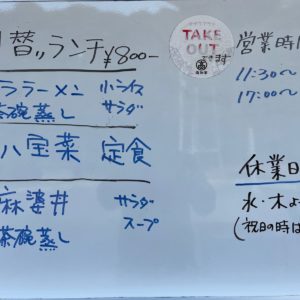 替ッランチ ¥800-
ラーメン 小ライス
茶碗蒸し サラダ
八宝菜 定食
麻婆丼 サラダ
茶碗蒸し スープ
TAKE
OUT
営業時
11:30〜
17:00〜
休業日
水・木よ
(祝日の時は